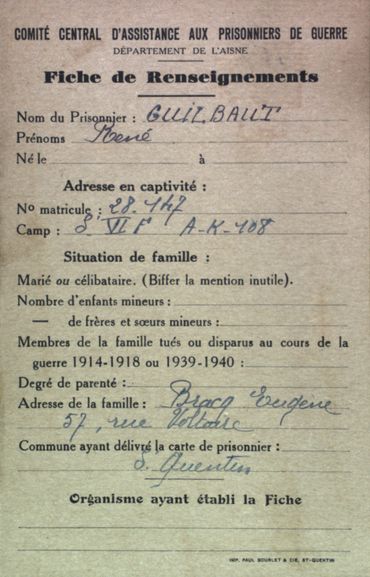 COMITÉ CENTRAL D'ASSISTANCE AUX PRISONNIERS DE GUERRE
DÉPARTEMENT DE L'AISNE
Fiche de Renseignements
Nom du Prisonnier : GUILBAUT
Prénoms René
Né le à
Adresse en captivité :
No matricule : 28.147
Camp : S VI F A-K-108
Situation de famille :
Marié ou célibataire. (Biffer la mention inutile).
Nombre d'enfants mineurs :
— de frères et sœurs mineurs :
Membres de la famille tués ou disparus au cours de la
guerre 1914-1918 ou 1939-1940 :
Degré de parenté :
Adresse de la famille : Bracq Eugene
57, rue Voltaire
Commune ayant délivré la carte de prisonnier :
S. Quentin
Organisme ayant établi la Fiche
IMP. PAUL BOURLET & CIE, ST-QUENTIN